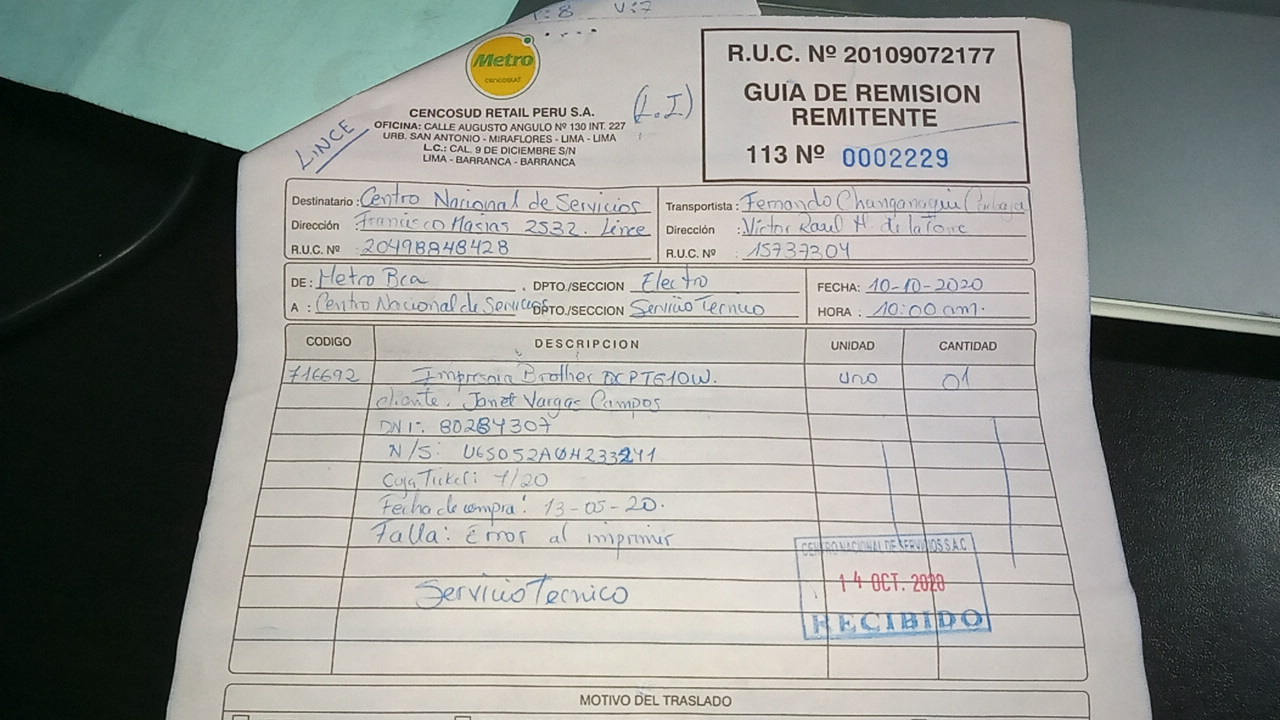 T: 8 V: 7
Metro
CENCOSUD
CENCOSUD RETAIL PERU S.A.
OFICINA: CALLE AUGUSTO ANGULO Nº 130 INT. 227
URB. SAN ANTONIO - MIRAFLORES - LIMA - LIMA
L.C.: CAL. 9 DE DICIEMBRE S/N
LIMA - BARRANCA - BARRANCA
LINCE
(L.I)
R.U.C. Nº 20109072177
GUIA DE REMISION
REMITENTE
113 Nº 0002229
Destinatario : Centro Nacional de Servicios
Dirección : Francisco Masias 2532. Lince
R.U.C. Nº : 20498848428
Transportista : Fernando Changanaqui
Dirección : Victor Raul H. de la Torre
R.U.C. Nº : 15737304
DE : Metro Bca . DPTO./SECCION Electro
A : Centro Nacional de Servicios DPTO./SECCION Servicio Tecnico
FECHA: 10-10-2020
HORA : 10:00 am.
CODIGO DESCRIPCION UNIDAD CANTIDAD
716692 Impresora Brother DCPT510W. uno 01
cliente. Janet Vargas Campos
DNI: 80284307
N/S: U65052A0H233241
Caja Ticket: 7/20
Fecha de compra: 13-05-20.
Falla: Error al imprimir
Servicio Tecnico
CENTRO NACIONAL DE SERVICIOS S.A.C
14 OCT. 2020
RECIBIDO
MOTIVO DEL TRASLADO